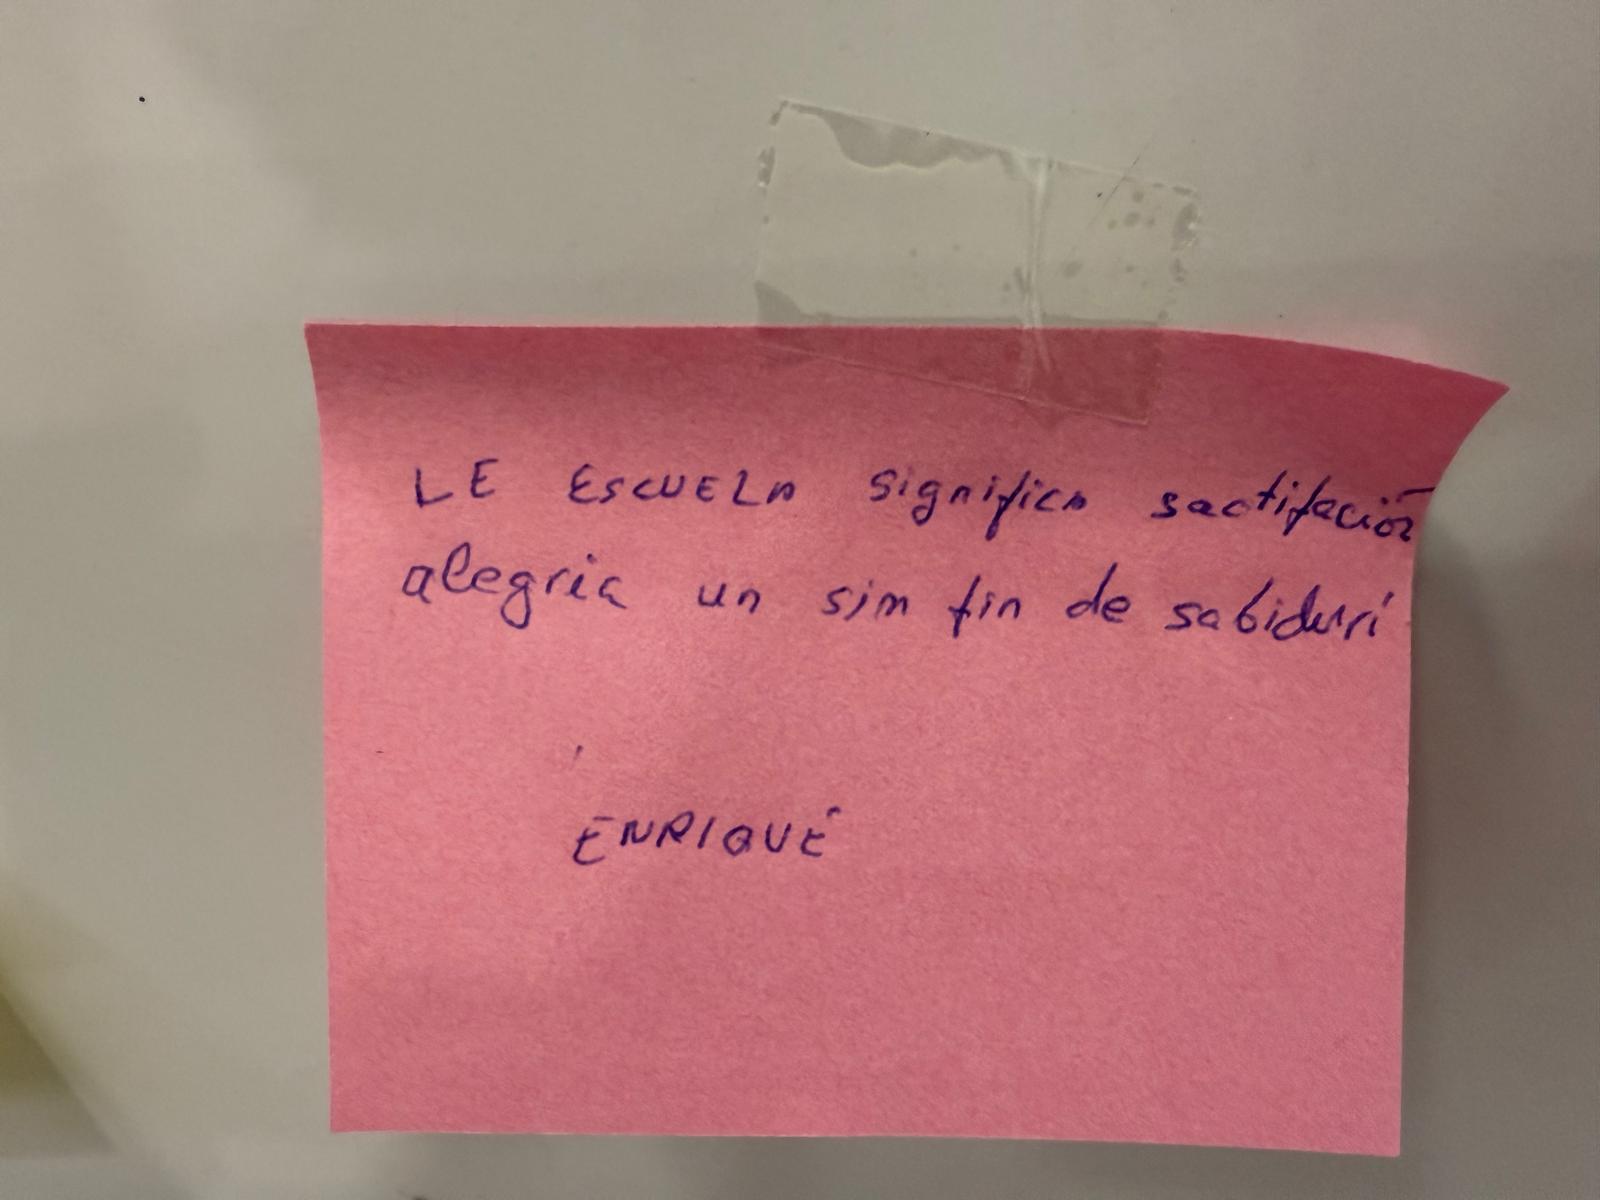 LE ESCUELA significa sactifación
alegria un sim fin de sabidurí
ENRIQUÉ